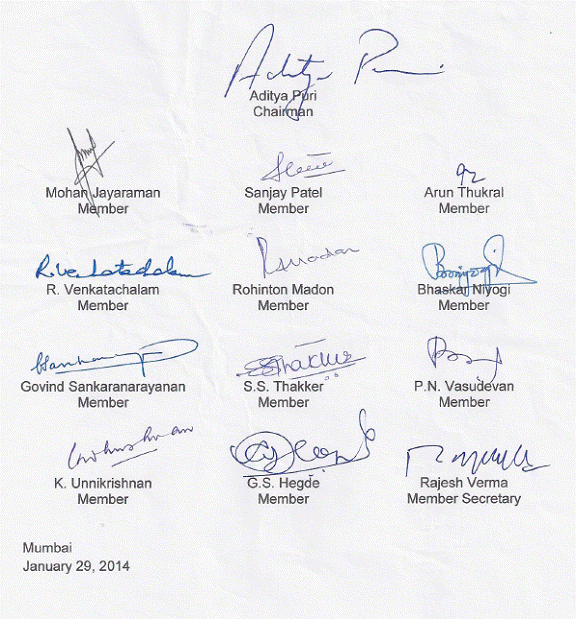 Aditya Puri
Aditya Puri
Chairman
Mohan Jayaraman
Member
Sanjay Patel
Member
Arun Thukral
Member
R. Venkatachalam
R. Venkatachalam
Member
Rohinton Madon
Member
Bhaskar Niyogi
Member
Govind Sankaranarayanan
Member
SSThakker
S.S. Thakker
Member
P.N. Vasudevan
Member
K. Unnikrishnan
Member
G.S. Hegde
Member
Rajesh Verma
Member Secretary
Mumbai
January 29, 2014